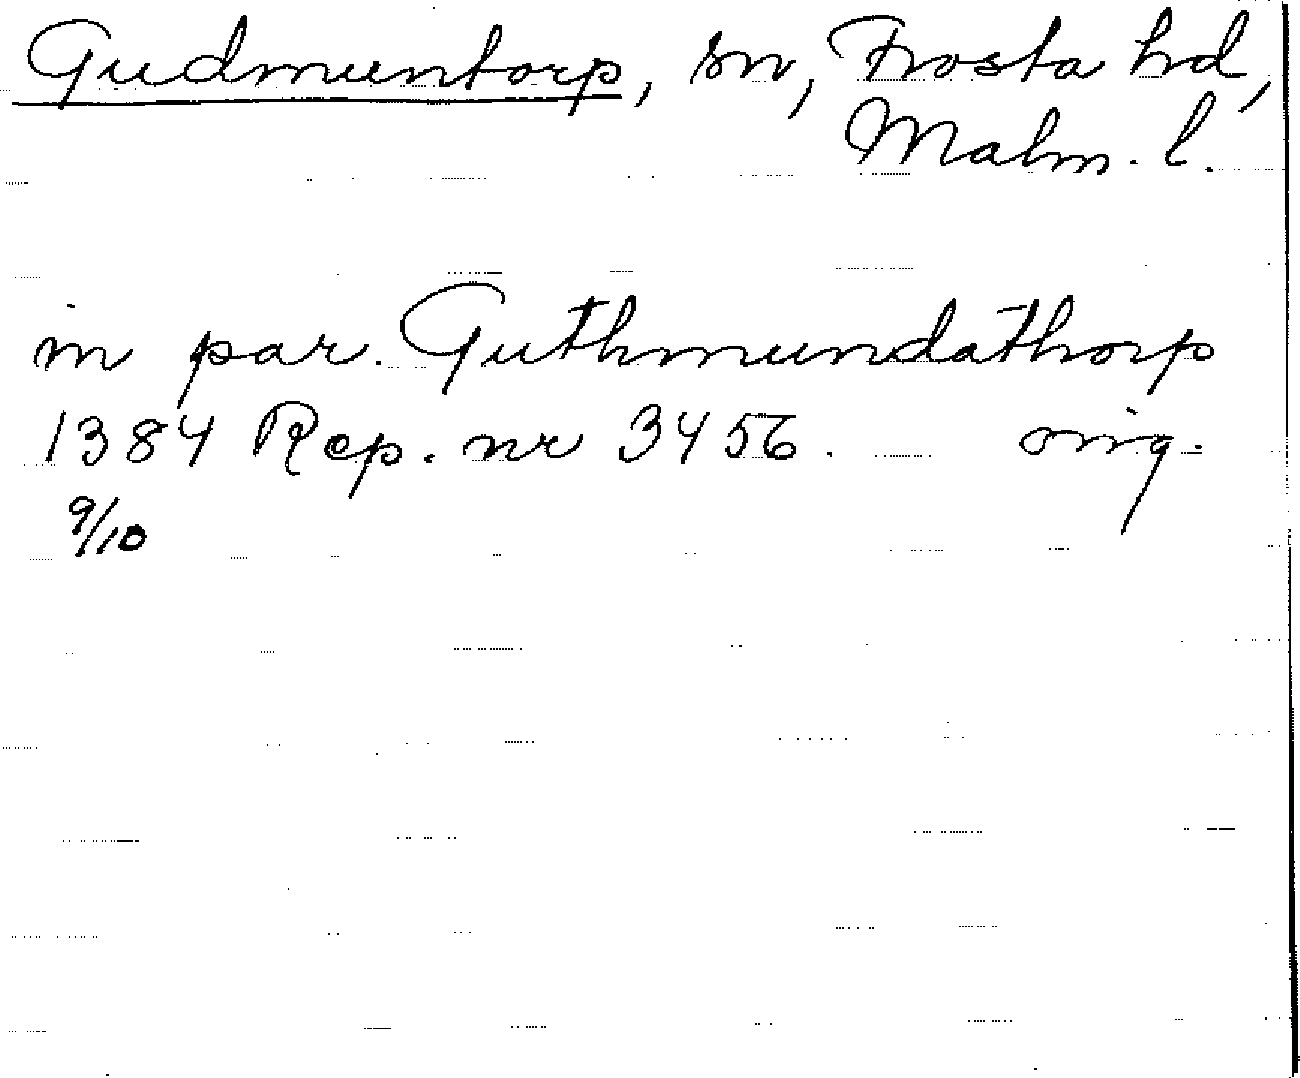 Gudmuntorp, sn, Frosta hd,
Malm. l.
in par. Guthmundathorp
1384 Rep. nr 3456. orig.
9/10